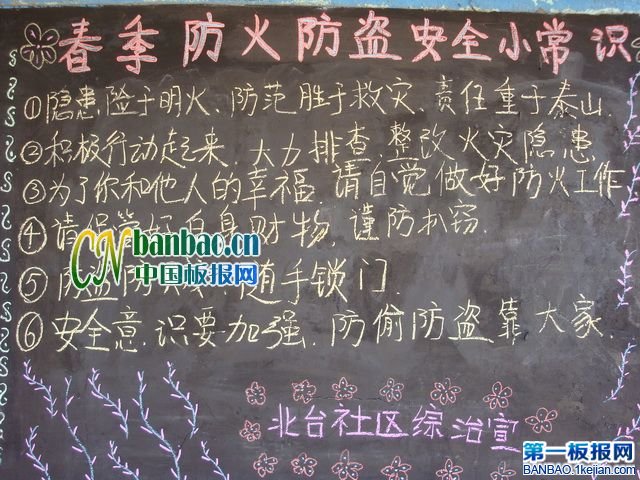 春季防火防盗安全小常识
①隐患险于明火、防范胜于救灾、责任重于泰山
②积极行动起来、大力排查、整改火灾隐患
③为了你和他人的幸福、请自觉做好防火工作
④请保管好自身财物、谨防扒窃.
CN banbao.cn
中国板报网
⑤防盗防 随手锁门.
⑥安全意识要加强、防偷防盗靠大家.
北台社区综治宣
第一板报网
BANBAO.1kejian.com